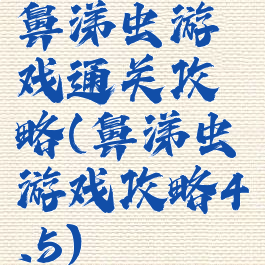 鼻涕虫游
戏通关攻
略(鼻涕虫
游戏攻略4
.5)